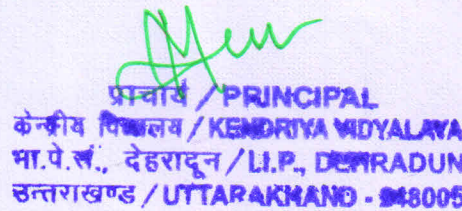 प्राचार्य / PRINCIPAL
केन्द्रीय विद्यालय / KENDRIYA VIDYALAYA
भा.पे.सं., देहरादून / I.I.P., DEHRADUN
उत्तराखण्ड / UTTARAKHAND - 248005